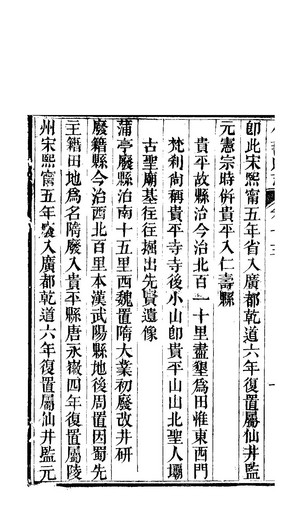 卽此宋熙甯五年省入廣都乾道六年復置屬仙井監
元憲宗時併貴平入仁壽縣
貴平故縣治今治北百一十里盡墾爲田惟東西門
梵刹尙稱貴平寺寺後小山卽貴平山山北聖人壩
古聖廟基往往掘出先賢遺像
蒲亭廢縣治南十五里西魏置隋大業初廢改井研
廢籍縣今治西北百里本漢武陽縣地後周置因蜀先
主籍田地爲名隋廢入貴平縣唐永徽四年復置屬陵
州宋熙甯五年廢入廣都乾道六年復置屬仙井監元